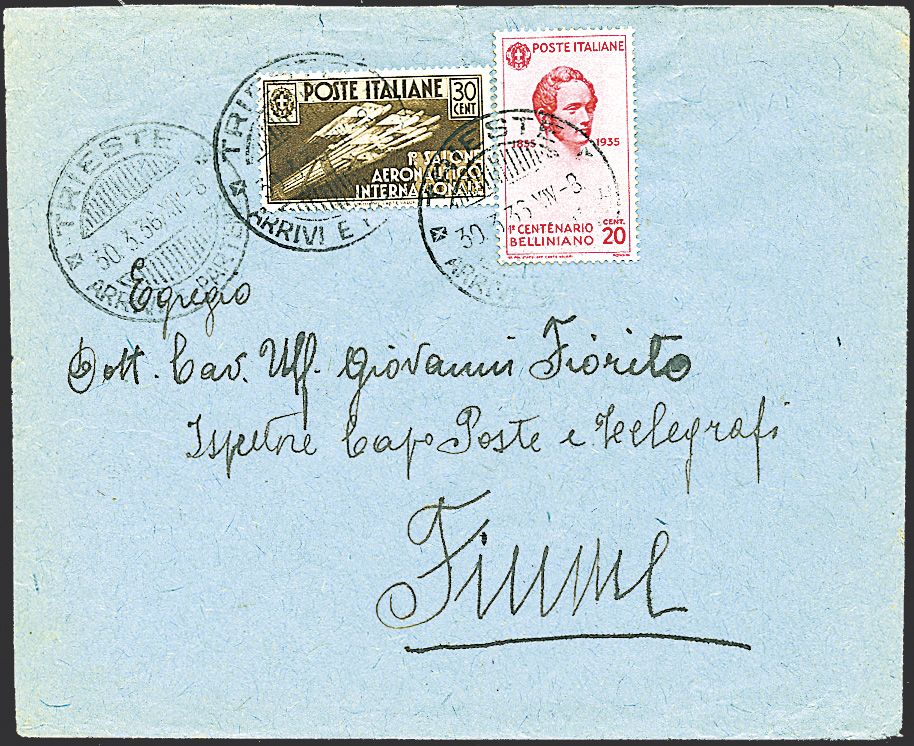 POSTE ITALIANE
30
CENT
1º SALONE
AERONAUTICO
INTERNAZIONALE
POSTE ITALIANE
1835 1935
1º CENTENARIO
BELLINIANO
CENT.
20
TRIESTE
30.3.36.XIV-8
ARRIVI E PARTENZE
TRIESTE
ARRIVI E P
TRIESTE
30.3.36 XIV-8
ARRIVI
Egregio
Dott. Cav. Uff. Giovanni Fiorito
Ispettore Capo Poste e Telegrafi
Fiume